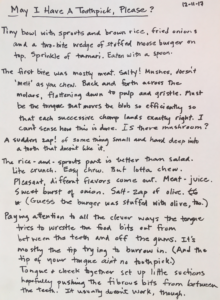 May I Have A Toothpick, Please?
12-11-17
Tiny bowl with sprouts and brown rice, fried onions
and a two-bite wedge of stuffed moose burger on
top. Sprinkle of tamari. Eaten with a spoon.
The first bite was mostly meat. Salty! Mashes, doesn't
"melt" as you chew. Back and forth across the
molars, flattening down to pulp and gristle. Must
be the tongue that moves the blob so efficiently so
that each successive chomp lands exactly right. I
can't sense how this is done. Is there mushroom?
A sudden zap! of something small and hard deep into
a tooth that doesn't like it.
The rice-and-sprouts part is better than salad.
Lite crunch. Easy chew. Isn't lotta chew.
Pleasant, different flavors come out. Meat-juice.
Sweet burst of onion. Salt-zap of olive.
(Guess the burger was stuffed with olive, too.)
Paying attention to all the clever ways the tongue
tries to wrestle the food bits out from
between the teeth and off the gums. It's
mostly the tip trying to burrow in. (And the
tip of your tongue ain't no toothpick.)
Tongue & cheek together set up little suctions
hopefully pushing the fibrous bits from between
the teeth. It usually doesn't work, though.